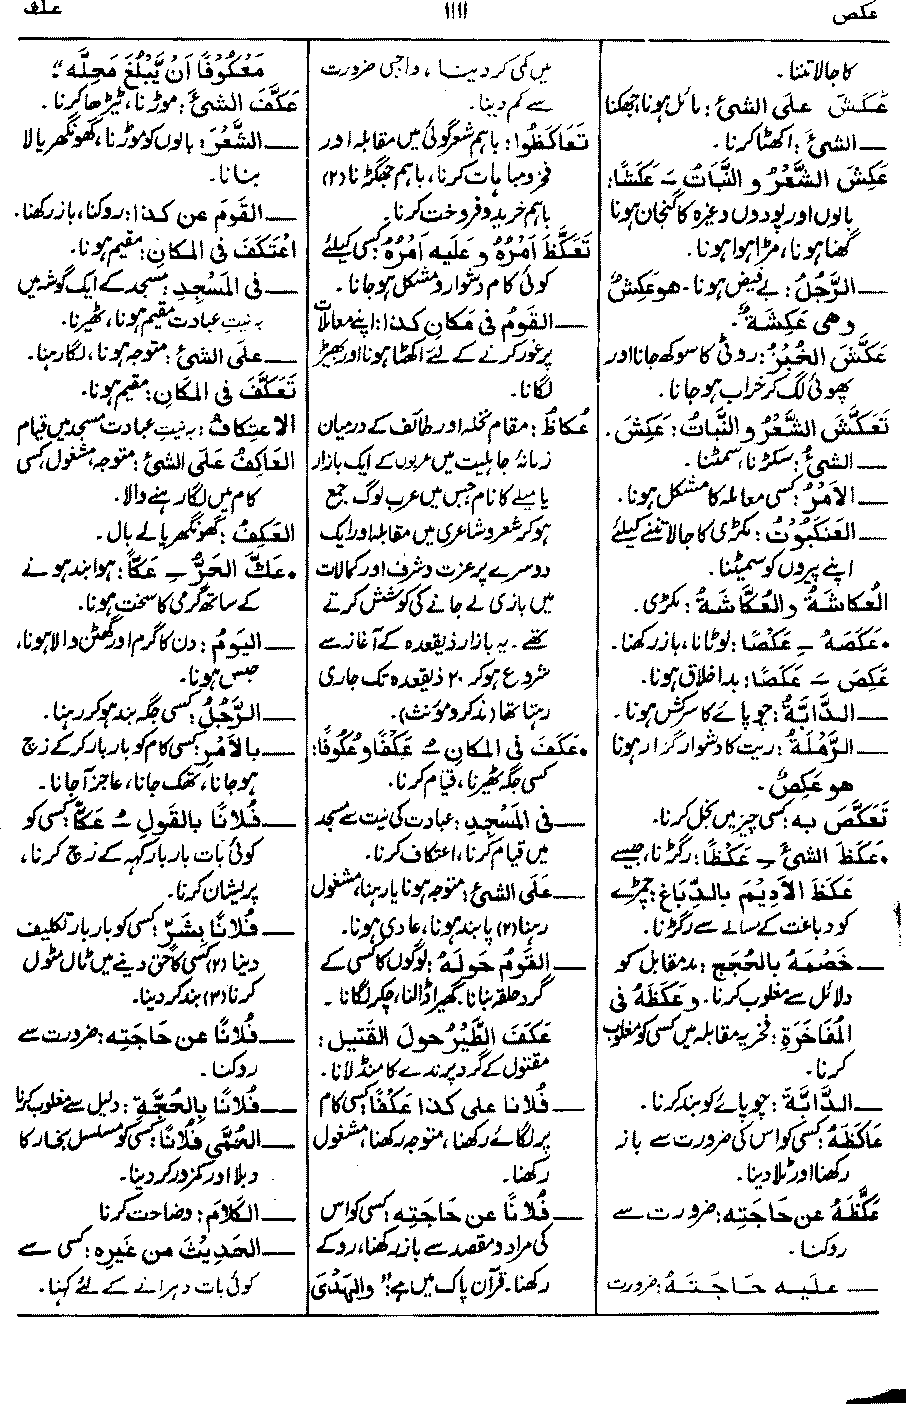 عکص
۱۱۱۱
علف
کا جالا تننا۔
عَکَشَ علی الشیٔ: مائل ہونا، جھکنا
— الشیٔ: اکٹھا کرنا۔
عَکِشَ الشَّعْرُ و النَّبَاتُ ـَ عَکَشًا:
بالوں اور پودوں وغیرہ کا گنجان ہونا
گھنا ہونا، مڑا ہوا ہونا۔
— الرَّجُلُ: بے فیض ہونا۔ ھو عَکِشٌ
و ھی عَکِشَۃٌ۔
عَکَّشَ الخُبْزُ: روٹی کا سوکھ جانا اور
پھوئی لگ کر خراب ہو جانا۔
تَعَکَّشَ الشَّعْرُ و النَّبَاتُ: عَکِشَ۔
— الشیٔ: سکڑنا، سمٹنا۔
— الاَمْرُ: کسی معاملہ کا مشکل ہونا۔
— العَنکَبُوْتُ: مکڑی کا جالا تننے کیلئے
اپنے پیروں کو سمیٹنا۔
العُکَاشَۃُ والعُکَّاشَۃُ: مکڑی۔
• عَکَصَہٗ ـِ عَکْصًا: لوٹانا، باز رکھنا۔
عَکِصَ ـَ عَکَصًا: بد اخلاق ہونا۔
— الدَّابَّۃُ: چوپائے کا سرکش ہونا۔
— الرَّمْلَۃُ: ریت کا دشوار گزار ہونا
ھو عَکِصٌ۔
تَعَکَّصَ بہ: کسی چیز میں بخل کرنا۔
• عَکَظَ الشیٔ ـِ عَکْظًا: رگڑنا، جیسے
عَکَظَ الاَدِیْمَ بالدِّبَاغِ: چمڑے
کو دباغت کے مسالے سے رگڑنا۔
— خَصْمَہٗ بالحُجَجِ: مد مقابل کو
دلائل سے مغلوب کرنا۔ و عَکَظَہٗ فی
المُفَاخَرَۃِ: فخریہ مقابلہ میں کسی کو مغلوب
کرنا۔
— الدَّابَّۃَ: چوپائے کو بند کرنا۔
عَاکَظَہٗ: کسی کو اس کی ضرورت سے باز
رکھنا اور ٹلا دینا۔
عَکَّظَہٗ عن حَاجَتِہ: ضرورت سے
روکنا۔
— علیہ حَاجَتَہٗ: ضرورت
میں کمی کر دینا، واجبی ضرورت
سے کم دینا۔
تَعَاکَظُوا: باہم شعر گوئی میں مقابلہ اور
فخر و مباہات کرنا، باہم جھگڑنا (۲)
باہم خرید و فروخت کرنا۔
تَعَکَّظَ اَمْرُہٗ و عَلَیہ اَمْرُہٗ: کسی کیلئے
کوئی کام دشوار و مشکل ہو جانا۔
— القَومُ فی مَکَانِ کذا: اپنے معاملات
پر غور کرنے کے لئے اکٹھا ہونا اور بھیڑ
لگانا۔
عُکَاظ: مقام نخلہ اور طائف کے درمیان
زمانۂ جاہلیت میں عربوں کے ایک بازار
یا میلے کا نام جس میں عرب لوگ جمع
ہو کر شعر و شاعری میں مقابلہ اور ایک
دوسرے پر عزت و شرف اور کمالات
میں بازی لے جانے کی کوشش کرتے
تھے۔ یہ بازار ذیقعدہ کے آغاز سے
شروع ہو کر ۲۰ ذیقعدہ تک جاری
رہتا تھا (مذکر و مؤنث)۔
• عَکَفَ فی المکانِ ـُ عَکْفًا و عُکُوفًا:
کسی جگہ ٹھیرنا، قیام کرنا۔
— فی المَسْجِدِ: عبادت کی نیت سے مسجد
میں قیام کرنا، اعتکاف کرنا۔
— عَلَی الشیٔ: متوجہ ہونا یا رہنا، مشغول
رہنا (۲) پابند ہونا، عادی ہونا۔
— القَومُ حَولَہٗ: لوگوں کا کسی کے
گرد حلقہ بنانا۔ گھیرا ڈالنا، چکر لگانا۔
عَکَفَ الطَّیْرُ حولَ القَتیل:
مقتول کے گرد پرندے کا منڈلانا۔
— فُلانا علی کذا عَکْفًا: کسی کام
پر لگائے رکھنا، متوجہ رکھنا، مشغول
رکھنا۔
— فُلانًا عن حَاجَتِہ: کسی کو اس
کی مراد و مقصد سے باز رکھنا، روکے
رکھنا۔ قرآن پاک میں ہے "والہَدْیَ
مَعْکُوفًا اَنْ یَّبْلُغَ مَحِلَّہ"۔
عَکَّفَ الشیٔ: موڑنا، ٹیڑھا کرنا۔
— الشَّعْرَ: بالوں کو موڑنا، گھونگھریالا
بنانا۔
— القَومَ عن کذا: روکنا، باز رکھنا۔
اعْتَکَفَ فی المکان: مقیم ہونا۔
— فی المَسْجِدِ: مسجد کے ایک گوشہ میں
بہ نیت عبادت مقیم ہونا، ٹھیرنا۔
— علی الشیٔ: متوجہ ہونا، لگا رہنا۔
تَعَکَّفَ فی المکان: مقیم ہونا۔
الاعتِکافُ: بہ نیت عبادت مسجد میں قیام
العَاکِفُ عَلی الشیٔ: متوجہ، مشغول، کسی
کام میں لگا رہنے والا۔
العَکِفُ: گھونگھریالے بال۔
• عَکَّ الحَرُّ ـِ عَکًّا: ہوا بند ہونے
کے ساتھ گرمی کا سخت ہونا۔
— الیَومُ: دن کا گرم اور گھٹن والا ہونا،
حبس ہونا۔
— الرَّجُلُ: کسی جگہ بند ہو کر رہنا۔
— بالاَمْرِ: کسی کام کو بار بار کرکے زچ
ہو جانا، تھک جانا، عاجز آ جانا۔
— فُلانًا بالقَولِ ـُ عَکًّا: کسی کو
کوئی بات بار بار کہہ کے زچ کرنا،
پریشان کرنا۔
— فُلانًا بِشَرٍّ: کسی کو بار بار تکلیف
دینا (۲) کسی کا حق دینے میں ٹال مٹول
کرنا (۳) بند کر دینا۔
— فُلانًا عن حَاجَتِہ: ضرورت سے
روکنا۔
— فُلانًا بِالحُجَّۃِ: دلیل سے مغلوب کرنا
— الحُمّٰی فُلانًا: کسی کو مسلسل بخار کا
دبلا اور کمزور کر دینا۔
— الکَلامَ: وضاحت کرنا
— الحَدِیثَ من غَیرِہ: کسی سے
کوئی بات دہرانے کے لئے کہنا۔